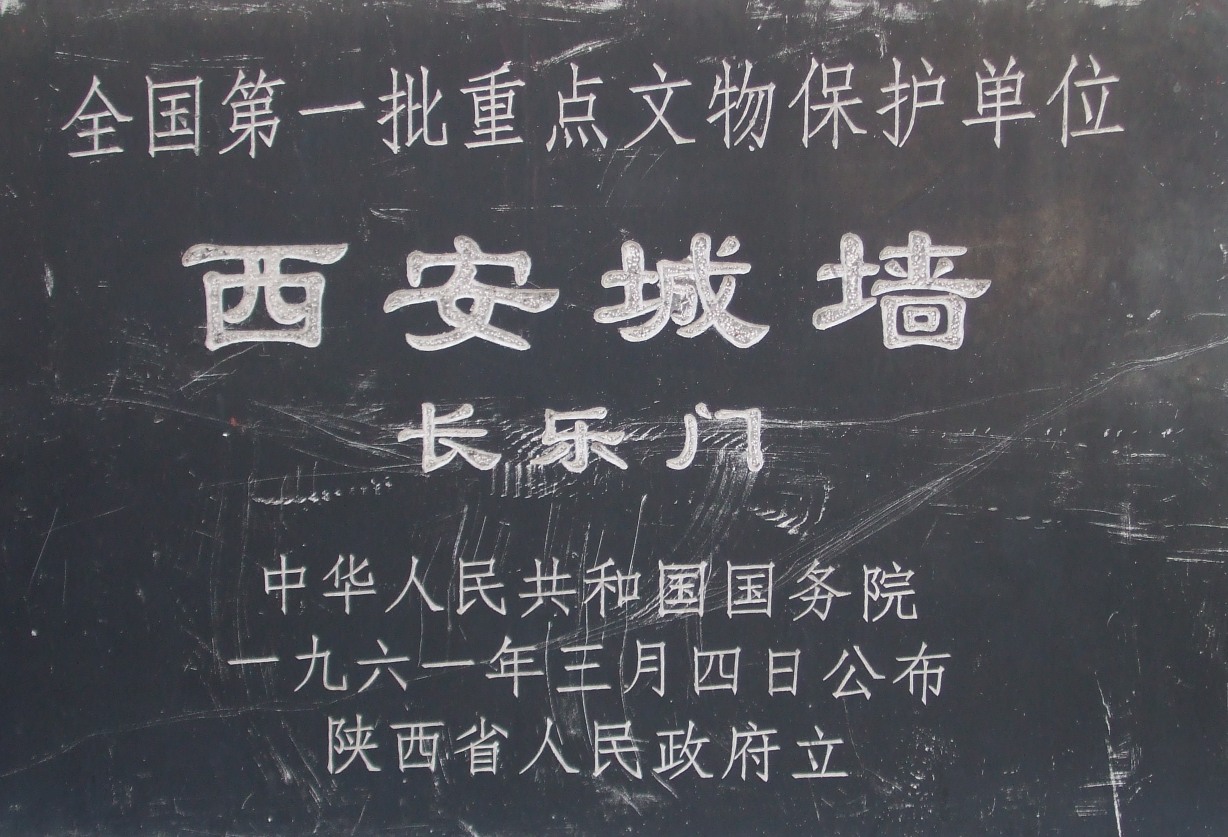 全国第一批重点文物保护单位
西安城墙
长乐门
中华人民共和国国务院
一九六一年三月四日公布
陕西省人民政府立